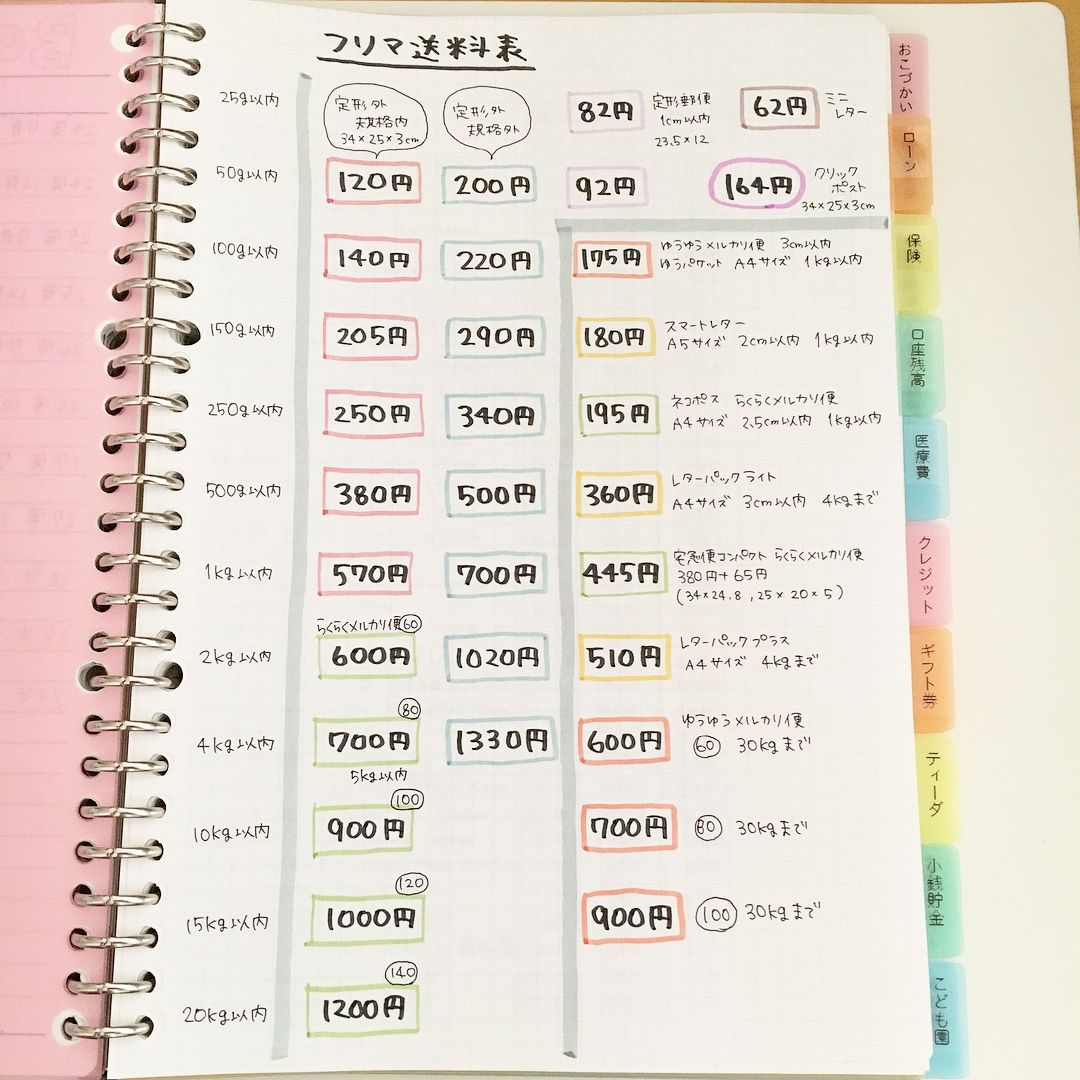 フリマ送料表
25g以内
定形外
規格内
34×25×3cm
定形外
規格外
82円
定形郵便
1cm以内
23.5×12
62円
ミニ
レター
50g以内
120円
200円
92円
164円
クリック
ポスト
34×25×3cm
100g以内
140円
220円
175円
ゆうゆうメルカリ便 3cm以内
ゆうパケット A4サイズ 1kg以内
150g以内
205円
290円
180円
スマートレター
A5サイズ 2cm以内 1kg以内
250g以内
250円
340円
195円
ネコポス らくらくメルカリ便
A4サイズ 2.5cm以内 1kg以内
500g以内
380円
500円
360円
レターパックライト
A4サイズ 3cm以内 4kgまで
1kg以内
570円
700円
445円
宅急便コンパクト らくらくメルカリ便
380円+65円
(34×24.8, 25×20×5)
らくらくメルカリ便60
2kg以内
600円
1020円
510円
レターパックプラス
A4サイズ 4kgまで
80
4kg以内
700円
1330円
600円
ゆうゆうメルカリ便
60 30kgまで
5kg以内
100
10kg以内
900円
700円
80 30kgまで
120
15kg以内
1000円
900円
100 30kgまで
140
20kg以内
1200円
おこづかい
ローン
保険
口座残高
医療費
クレジット
ギフト券
ティーダ
小銭貯金
こども園